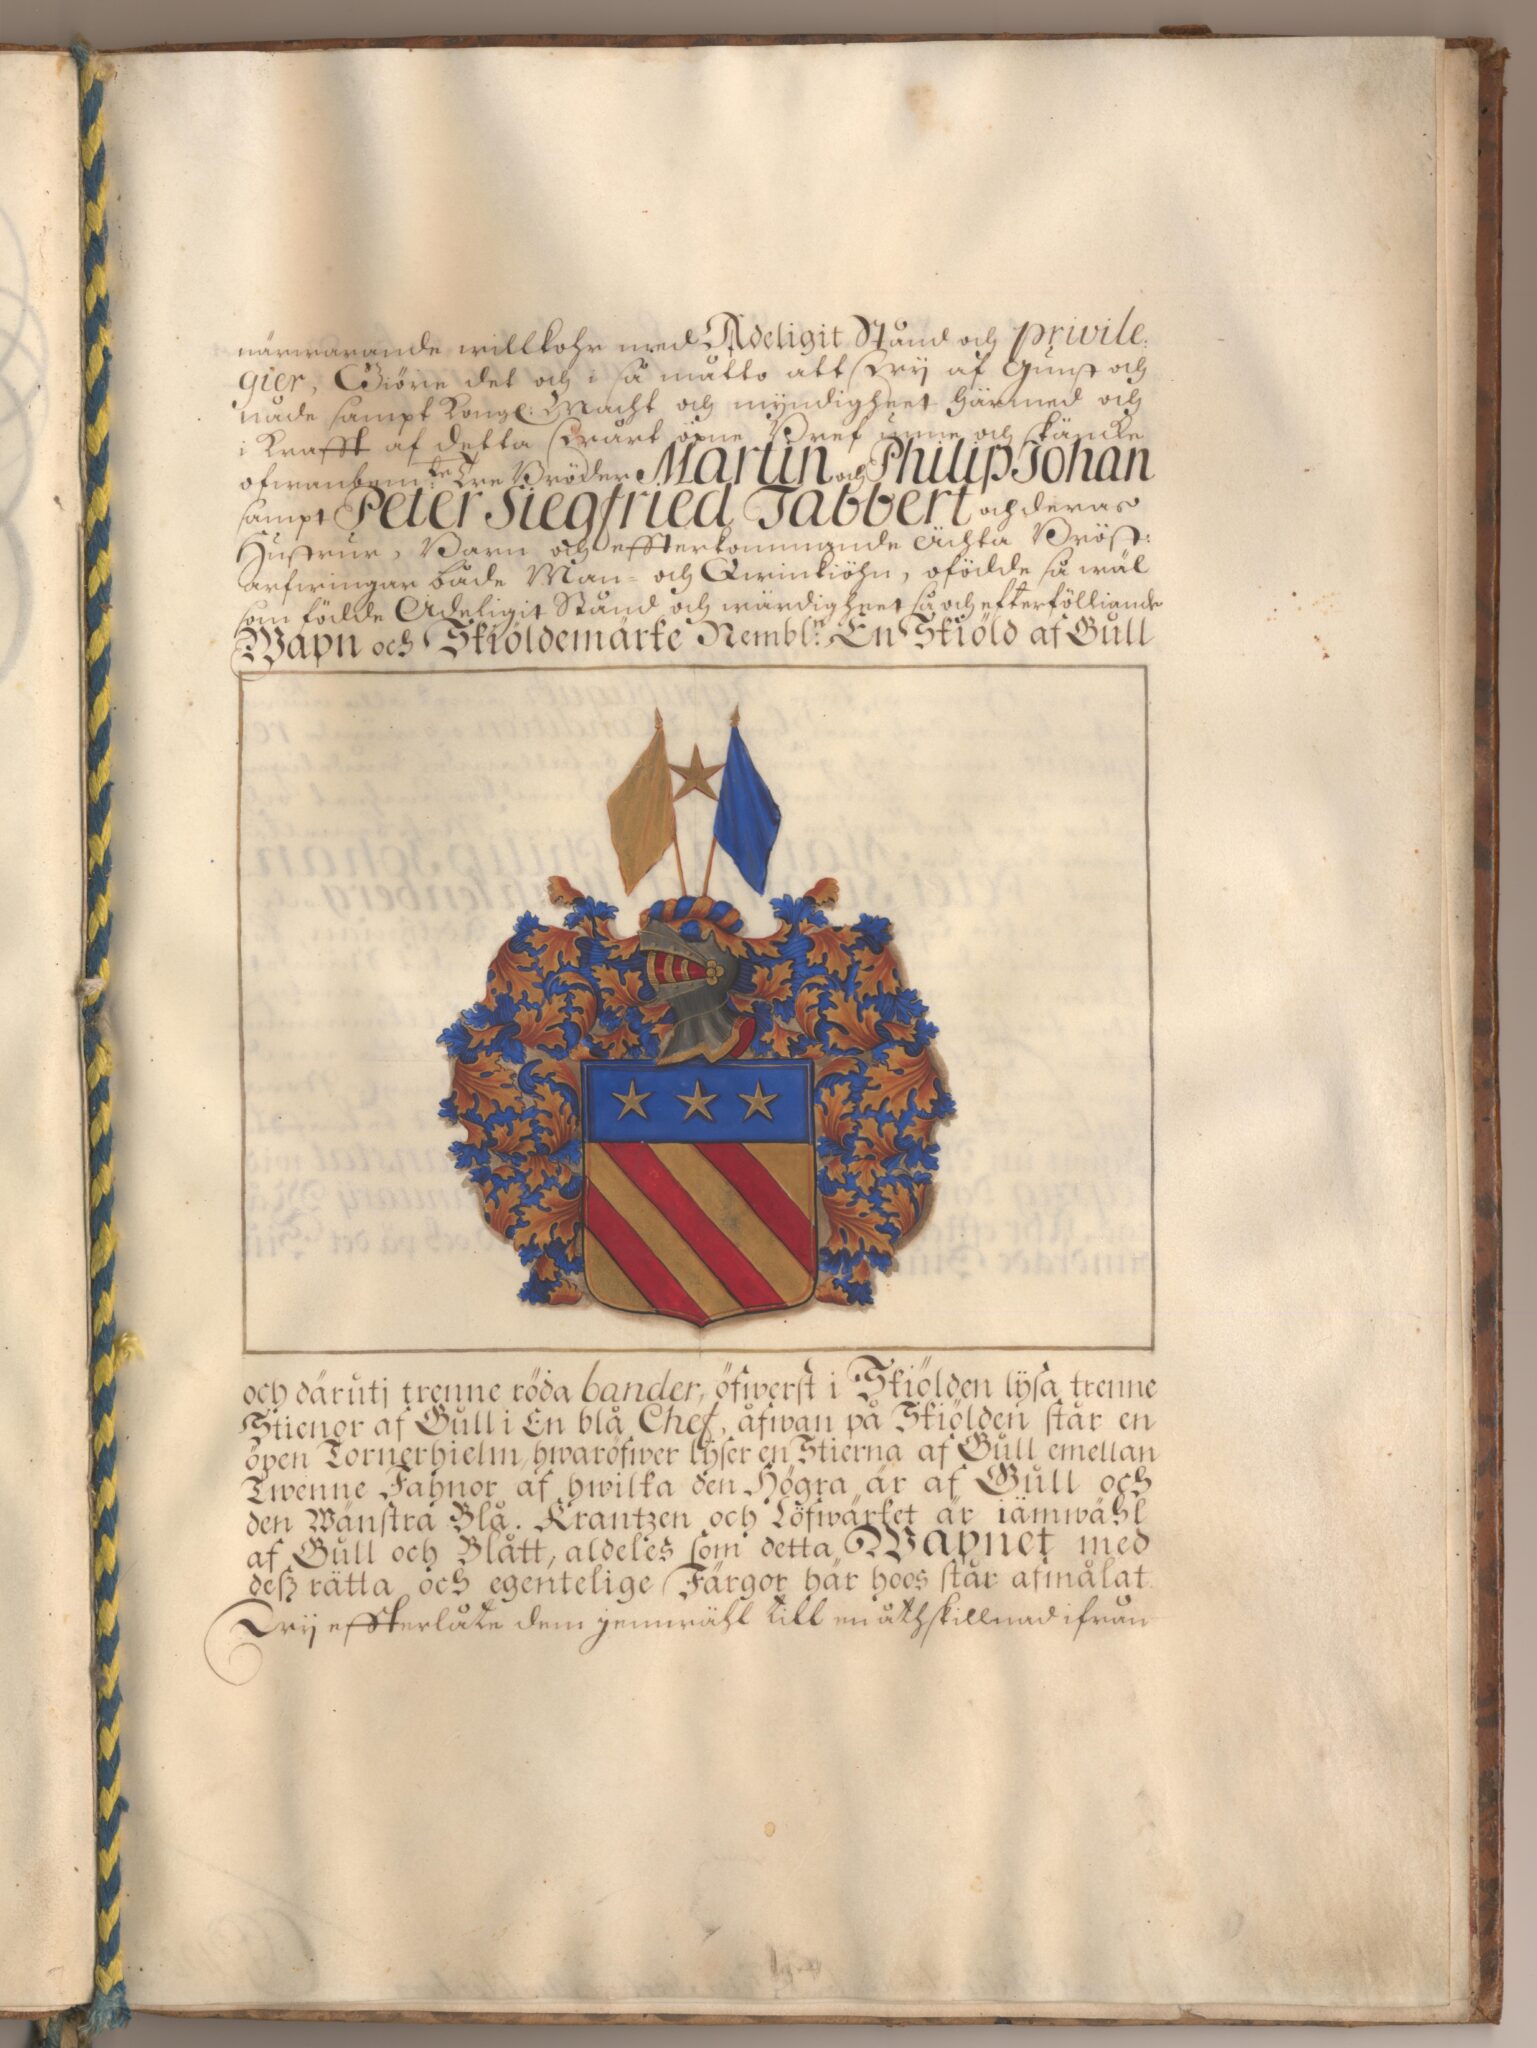 närwarande willkohr med Adeligit Stånd och privile:
gier, Giöre det och i så måtto att Wij af Gunst och
nåde sampt Kongl: Macht och myndigheet härmed och
i Krafft af detta Wårt öpne Bref unne och skäncke
ofwanbem:te Tre Bröder Martin och Philip Johan
sampt Peter Siegfried Tabbert och deras
Hustrur, Barn och effterkommande ächta Bröst:
arfwingar både Man- och Qwinkiöhn, ofödde så wäl
som födde Adeligit Stånd och wärdigheet så och efterfölliande
Wapn och Skiöldemärke Nembl:n En Skiöld af Gull
och därutj trenne röda bander, öfwerst i Skiölden lysa trenne
Stienor af Gull i En blå Chef, åfwan på Skiölden står en
öpen Tornerhielm, hwaröfwer lyser en Stierna af Gull emellan
Twenne Fahnor af hwilka den Högra är af Gull och
den Wänstra Blå. Krantzen och Löfwärket är iämwähl
af Gull och Blått, aldeles som detta Wapnet med
deß rätta och egentelige Färgor här hoos står afmålat
Wij effterlåte dem jemwähl till en åthskillnad ifrån